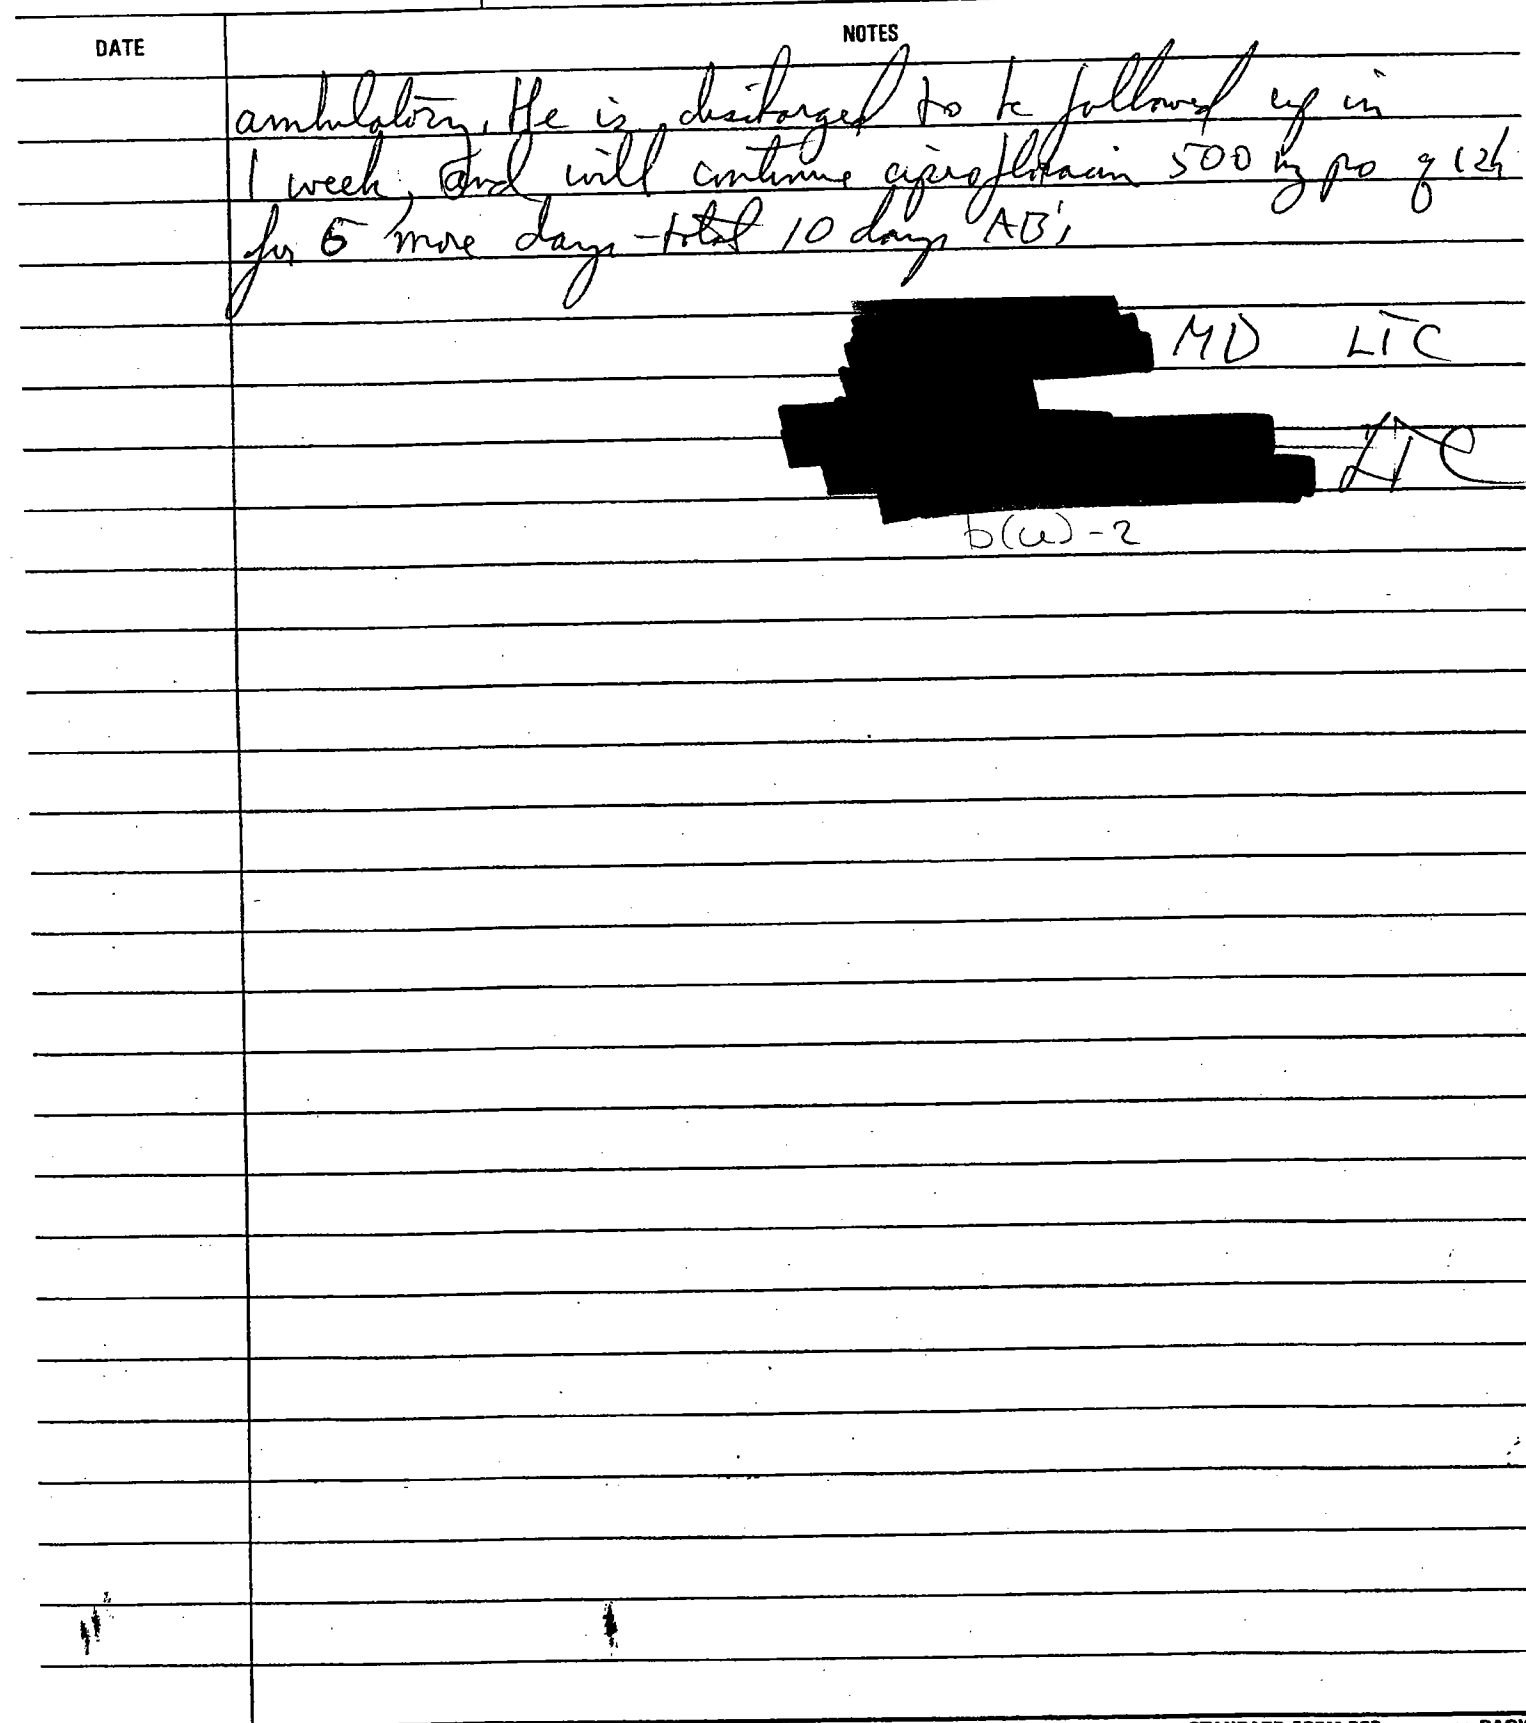 DATE NOTES
ambulatory. He is discharged to be followed up in
1 week, and will continue ciprofloxacin 500 mg po q 12h
for 5 more days - total 10 days AB's
MD LTC
LTC
b(6)-2